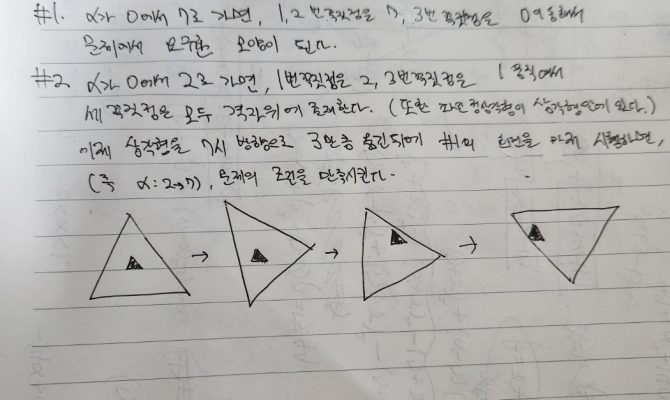 #1. α가 0에서 7로 가면, 1, 2번 꼭짓점은 7, 3번 꼭짓점은 0에
문제에서 요구한 모양이 된다.
#2 α가 0에서 2로 가면, 1번꼭짓점은 2, 3번꼭짓점은 1 움직여서
세 꼭짓점은 모두 격자위에 존재한다. (또한 파란 정삼각형이 삼각형안에 있다.)
이제 삼각형을 시 방향으로 3만큼 옮긴뒤에 #1의 을 시행하면,
(즉 α: 2→7), 문제의 조건을 만족시킨다.